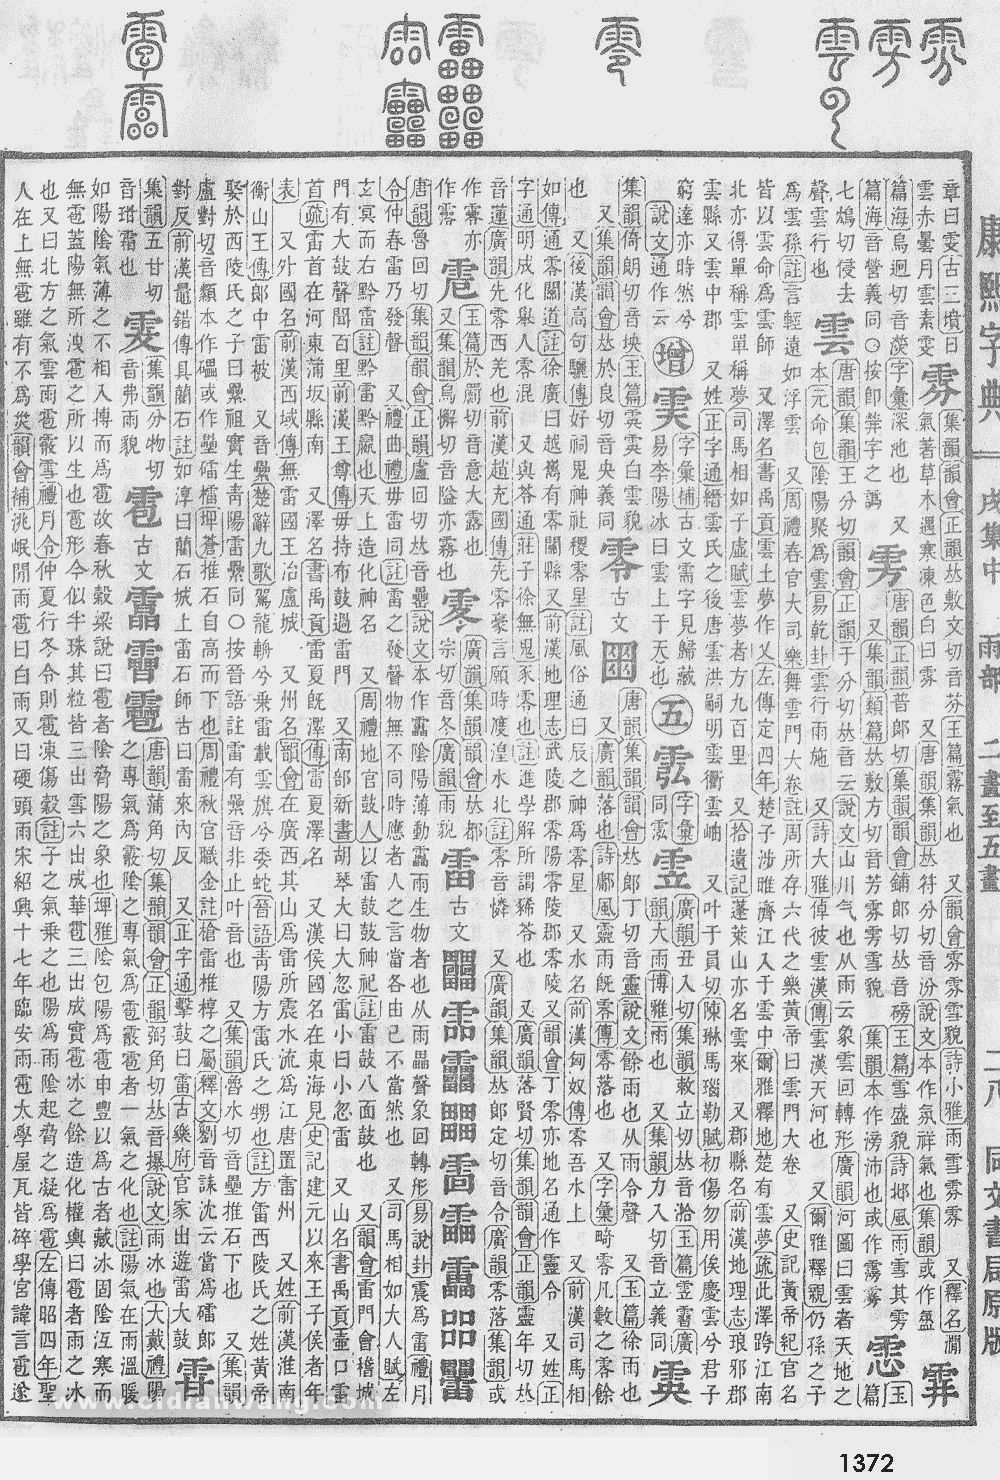 康熙字典 戌集中 雨部 二畫至五畫 二八 同文書局原版
章曰雯古三墳日雲赤曇月雲素雯 雰 集韻韻會正韻𠀤敷文切音芬玉篇霧氣也 又韻會雰雰雪貌詩小雅雨雪雰雰 又釋名潤氣著草木遇寒凍色白曰雰 又唐韻集韻𠀤符分切音汾說文本作氛祥氣也集韻或作
篇海烏迥切音濙字彙深池也 又篇海音營義同○按卽 字之譌 雱 唐韻正韻普郎切集韻韻會鋪郎切𠀤音磅玉篇雪盛貌詩邶風雨雪其雱 又集韻類篇𠀤敷方切音芳雰雱雪貌 集韻本作滂沛也或作霶雾
七鴆切侵去聲雲行也 雲 唐韻集韻王分切韻會正韻于分切𠀤音云說文山川气也从雨云象雲回轉形廣韻河圖曰雲者天地之本元命包陰陽聚爲雲易乾卦雲行雨施 又詩大雅倬彼雲漢傳雲漢天河也 又爾雅釋親仍孫之子
爲雲孫註言輕遠如浮雲 又周禮春官大司樂舞雲門大卷註周所存六代之樂黃帝曰雲門大卷 又史記黃帝紀官名
皆以雲命爲雲師 又澤名書禹貢雲土夢作乂左傳定四年楚子涉睢濟江入于雲中爾雅釋地楚有雲夢疏此澤跨江南
北亦得單稱雲單稱夢司馬相如子虛賦雲夢者方九百里 又拾遺記蓬萊山亦名雲來 又郡縣名前漢地理志琅邪郡
雲縣又雲中郡 又姓正字通縉雲氏之後唐雲洪嗣明雲衢雲岫 又叶于員切陳琳馬瑙勒賦初傷勿用俟慶雲兮君子
窮達亦時然兮 說文通作云 增 字彙補古文需字見歸藏易李陽冰曰雲上于天也 五 字彙同雲 廣韻丑入切集韻敕立切𠀤音湁玉篇 霫廣韻大雨博雅雨也 又集韻力入切音立義同
集韻倚朗切音坱玉篇 白雲貌 又集韻韻會𠀤於良切音央義同 零 古文 唐韻集韻韻會𠀤郎丁切音靈說文餘雨也从雨令聲 又玉篇徐雨也 又廣韻落也詩鄘風靈雨旣零傳零落也 又字彙畸零凡數之零餘
也 又後漢高句驪傳好祠鬼神社稷零星註風俗通曰辰之神爲零星 又水名前漢匈奴傳零吾水上 又前漢司馬相
如傳通零關道註徐廣曰越巂有零關縣又前漢地理志武陵郡零陽零陵郡零陵又韻會丁零亦地名通作靈令 又姓正
字通明成化舉人零混 又與苓通莊子徐無鬼豕零也註進學解所謂豨苓也 又廣韻集韻𠀤落賢切集韻韻會正韻靈年切𠀤
音蓮廣韻先零西羌也前漢趙充國傳先零豪言願時渡湟水北註零音憐 又廣韻集韻𠀤郎定切音令廣韻零落集韻或
作霝亦 玉篇於罽切音意大霧也 又集韻烏懈切音隘亦霧也 廣韻集韻韻會𠀤都宗切音冬廣韻雨貌 雷 古文
唐韻魯回切集韻韻會正韻盧回切𠀤音罍說文本作靁陰陽薄動靁雨生物者也从雨畾聲象回轉形易說卦震爲雷禮月
令仲春雷乃發聲 又禮曲禮毋雷同註雷之發聲物無不同時應者人之言當各由己不當然也 又司馬相如大人賦左
玄冥而右黔雷註黔雷黔嬴也天上造化神名 又周禮地官鼓人以雷鼓鼓神祀註雷鼓八面鼓也 又韻會雷門會稽城
門有大鼓聲聞百里前漢王尊傳毋持布鼓過雷門 又南部新書胡琴大曰大忽雷小曰小忽雷 又山名書禹貢壺口雷
首疏雷首在河東蒲坂縣南 又澤名書禹貢雷夏旣澤傳雷夏澤名 又漢侯國名在東海見史記建元以來王子侯者年
表 又外國名前漢西域傳無雷國王治盧城 又州名韻會在廣西其山爲雷所震水流爲江唐置雷州 又姓前漢淮南
衡山王傳郎中雷被 又音纍楚辭九歌駕龍輈兮乘雷載雲旗兮委蛇晉語靑陽方雷氏之甥也註方雷西陵氏之姓黃帝
娶於西陵氏之子曰纍祖實生靑陽雷纍同○按晉語註雷有纍音非止叶音也 又集韻魯水切音壘推石下也 又集韻
盧對切音纇本作礧或作壘礌檑埤蒼推石自高而下也周禮秋官職金註槍雷椎椁之屬釋文劉音誄沈云當爲礌郎
對反前漢鼂錯傳具藺石註如淳曰藺石城上雷石師古曰雷來內反 又正字通擊鼓曰雷古樂府官家出遊雷大鼓
集韻五甘切音玵霜也 集韻分物切音弗雨貌 雹 古文 唐韻蒲角切集韻韻會正韻弼角切𠀤音撲說文雨冰也大戴禮陽之專氣爲霰陰之專氣爲雹霰雹者一氣之化也註陽氣在雨溫暖
如陽陰氣薄之不相入搏而爲雹故春秋穀梁說曰雹者陰脅陽之象也埤雅陰包陽爲雹申豐以爲古者藏冰固陰沍寒而
無雹蓋陽無所洩雹之所以生也雹形今似半珠其粒皆三出雪六出成華雹三出成實雹冰之餘造化權輿曰雹者雨之冰
也又曰北方之氣雲雨雹霰雪禮月令仲夏行冬令則雹凍傷穀註子之氣乘之也陽爲雨陰起脅之凝爲雹左傳昭四年聖
人在上無雹雖有不爲災韻會補洮岷閒雨雹曰白雨又曰硬頭雨宋紹興十七年臨安雨雹太學屋瓦皆碎學宮諱言雹遂
www.cidianwang.com
1372